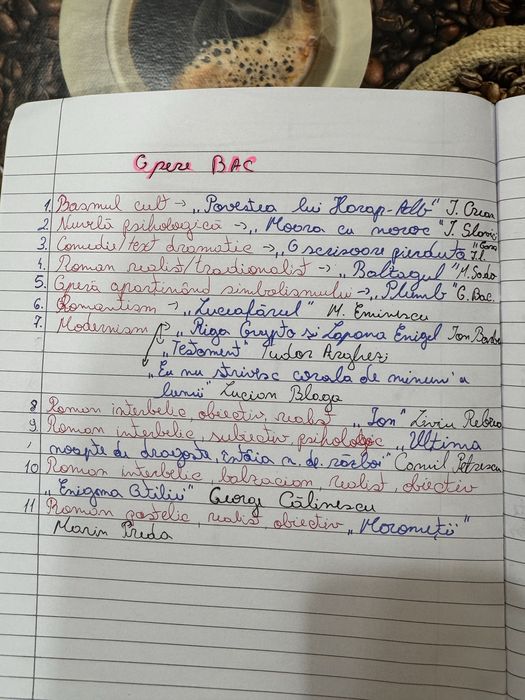 Opere BAC
1. Basmul cult → „Povestea lui Harap-Alb" I. Crean
2. Nuvelă psihologică → „Moara cu noroc" I. Slavici
3. Comedie/text dramatic → „O scrisoare pierdută" Cara
I.L.
4. Roman realist/tradionalist → „Baltagul" M. Sado
5. Operă aparținând simbolismului → „Plumb" G. Bac.
6. Romantism → „Luceafărul" M. Eminescu
7. Modernism → „Riga Crypto și Lapona Enigel Ion Barbu
„Testament" Tudor Arghezi
„Eu nu strivesc corola de minuni a
lumii" Lucian Blaga
8 Roman interbelic, obiectiv, realist „Ion" Liviu Rebrea
9 Roman interbelic, subiectiv, psihologic „Ultima
noapte de dragoste, întâia n. de. război" Camil Petrescu
10 Roman interbelic balzacian, realist, obiectiv
„Enigma Otiliei" George Călinescu
11 Roman postbelic, realist, obiectiv „Moromeții"
Marin Preda